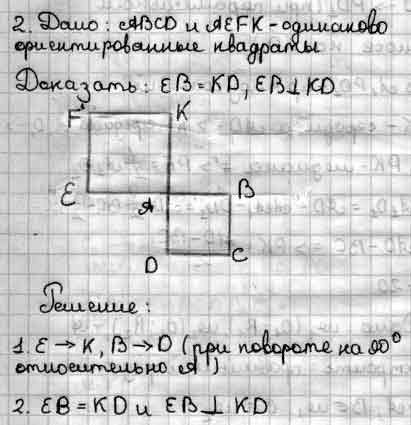 2. Дано: ABCD и AEFK - одинаково
ориентированные квадраты
Доказать: EB = KD, EB ⊥ KD
F K
E A B
D C
Решение:
1. E → K, B → D (при повороте на 90°
относительно A)
2. EB = KD и EB ⊥ KD